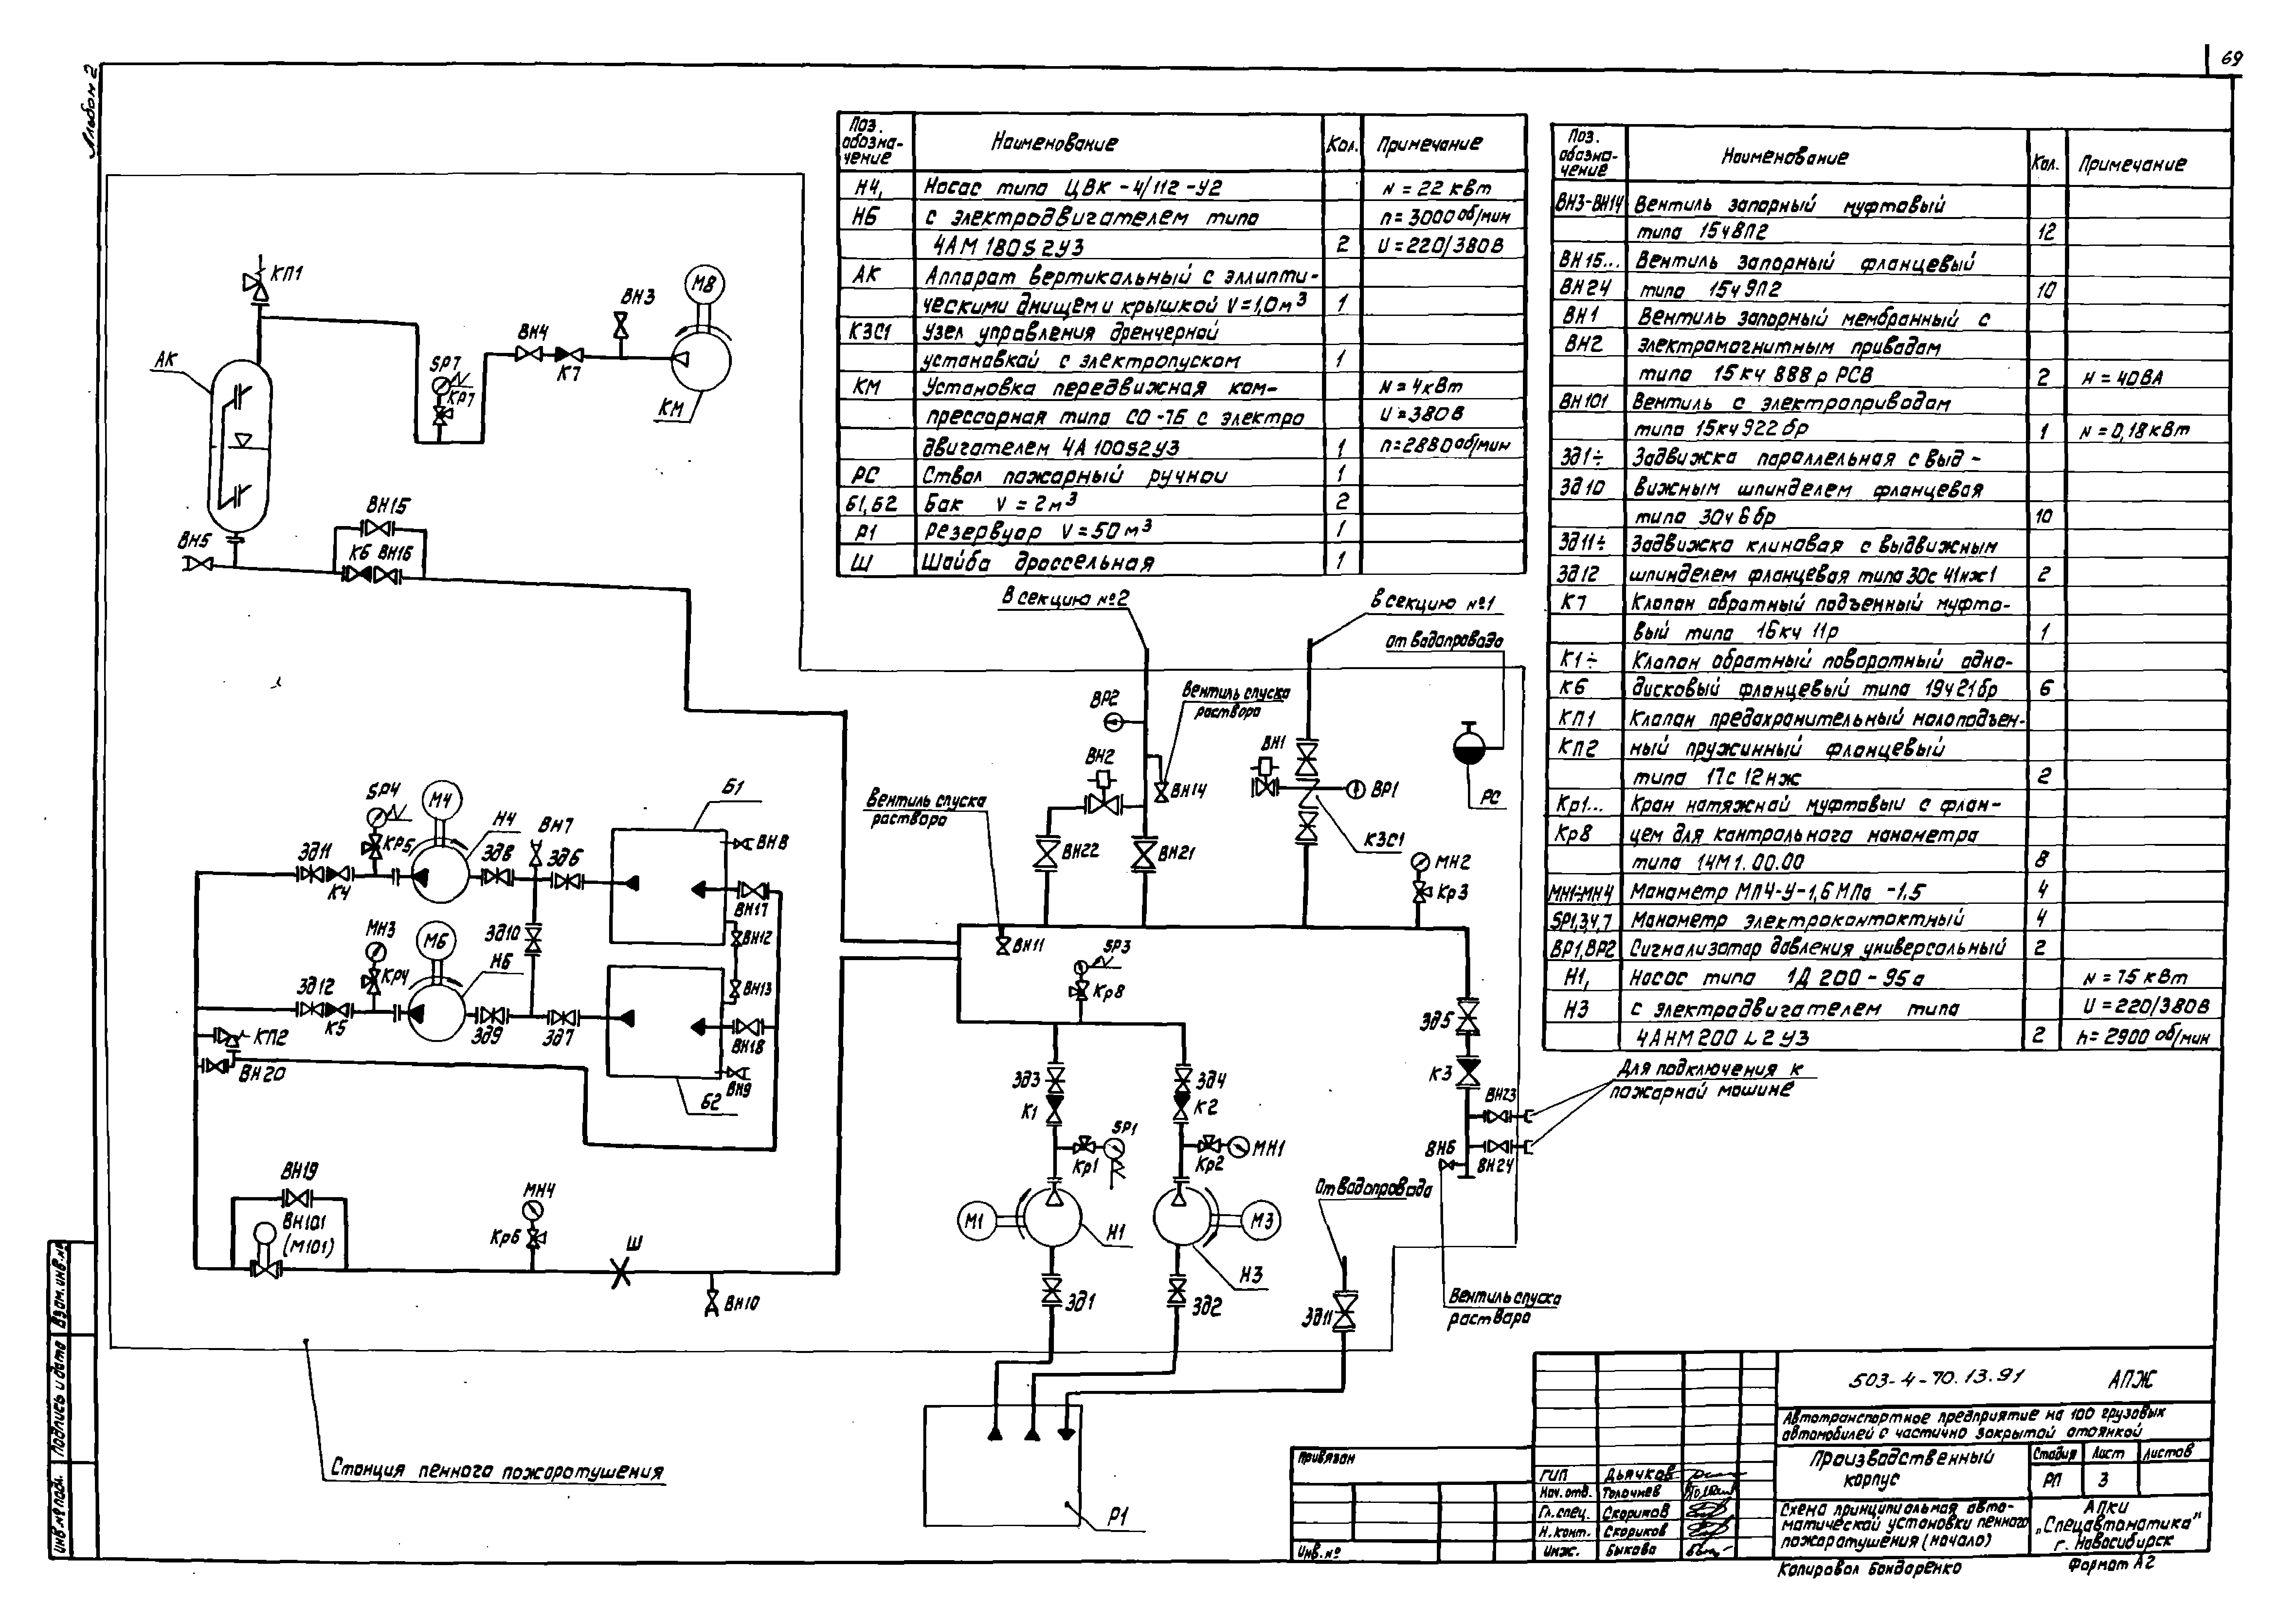 69
Альбом 2
Поз. обозна-чение | Наименование | Кол. | Примечание
Н4, | Насос типа ЦВК-4/112-У2 | | N = 22 кВт
Н6 | с электродвигателем типа | | n = 3000 об/мин
4АМ 180S2У3 | 2 | U = 220/380В
АК | Аппарат вертикальный с эллипти-
ческими днищем и крышкой V=1,0м³ | 1
КЗС1 | Узел управления дренчерной
установкой с электропуском | 1
КМ | Установка передвижная ком- | | N = 4кВт
прессорная типа СО-7Б с электро | | U = 380В
двигателем 4А100S2У3 | 1 | n=2880об/мин
РС | Ствол пожарный ручной | 1
Б1,Б2 | Бак V = 2м³ | 2
Р1 | Резервуар V = 50м³ | 1
Ш | Шайба дроссельная | 1
Поз. обозна-чение | Наименование | Кол. | Примечание
ВН3-ВН14 | Вентиль запорный муфтовый
типа 15ч8П2 | 12
ВН15... | Вентиль запорный фланцевый
ВН24 | типа 15ч9П2 | 10
ВН1 | Вентиль запорный мембранный с
ВН2 | электромагнитным приводом
типа 15кч 888р РСВ | 2 | Н = 40ВА
ВН101 | Вентиль с электроприводом
типа 15кч922бр | 1 | N=0,18кВт
Зд1÷ | Задвижка параллельная с выд-
Зд10 | вижным шпинделем фланцевая
типа 30ч6бр | 10
Зд11÷ | Задвижка клиновая с выдвижным
Зд12 | шпинделем фланцевая типа 30с41нж1 | 2
К7 | Клапан обратный подъемный муфто-
вый типа 16кч11р | 1
К1÷ | Клапан обратный поворотный одно-
К6 | дисковый фланцевый типа 19ч21бр | 6
КП1 | Клапан предохранительный малоподъем-
КП2 | ный пружинный фланцевый
типа 17с12нж | 2
Кр1... | Кран натяжной муфтовый с флан-
Кр8 | цем для контрольного манометра
типа 14М1.00.00 | 8
МН1÷МН4 | Манометр МП4-У-1,6МПа -1,5 | 4
SP1,3,4,7 | Манометр электроконтактный | 4
ВР1,ВР2 | Сигнализатор давления универсальный | 2
Н1, | Насос типа 1Д 200-95а | | N = 75 кВт
Н3 | с электродвигателем типа | | U = 220/380В
4АНМ200L2У3 | 2 | n = 2900 об/мин
КП1
АК
SP7
Кр7
ВН4
К7
ВН3
М8
КМ
ВН5
ВН15
К6
ВН16
В секцию №2
В секцию №1
от водопровода
ВР2
Вентиль спуска
раствора
ВН2
ВН14
ВН1
ВР1
РС
КЗС1
ВН22
ВН21
МН2
Кр3
Вентиль спуска
раствора
ВН11
SP4
М4
Н4
Кр5
Зд11
К4
Зд8
ВН7
Зд6
Б1
ВН8
ВН17
ВН12
МН3
М6
Н6
Кр4
Зд10
ВН13
Зд12
К5
Зд9
Зд7
ВН18
КП2
ВН20
Б2
ВН9
SP3
Кр8
Зд5
К3
Для подключения к
пожарной машине
ВН23
ВН6
ВН24
Зд3
Зд4
К1
К2
SP1
Кр1
Кр2
МН1
М1
Н1
М3
Н3
От водопровода
Зд1
Зд2
Зд11
Вентиль спуска
раствора
ВН19
ВН101
(М101)
МН4
Кр6
Ш
ВН10
Станция пенного пожаротушения
Р1
Взам. инв.№
Подпись и дата
Инв.№ подл.
Привязан
Инв.№
ГИП | Дьячков
Нач. отд. | Толочнев
Гл.спец. | Скориков
Н.конт. | Скориков
Инж. | Быкова
503-4-70.13.91 АПЖ
Автотранспортное предприятие на 100 грузовых
автомобилей с частично закрытой стоянкой
Производственный
корпус
Стадия | Лист | Листов
РП | 3
Схема принципиальная авто-
матической установки пенного
пожаротушения (начало)
АПКИ
„Спецавтоматика"
г. Новосибирск
Копировал Бондаренко
Формат А2